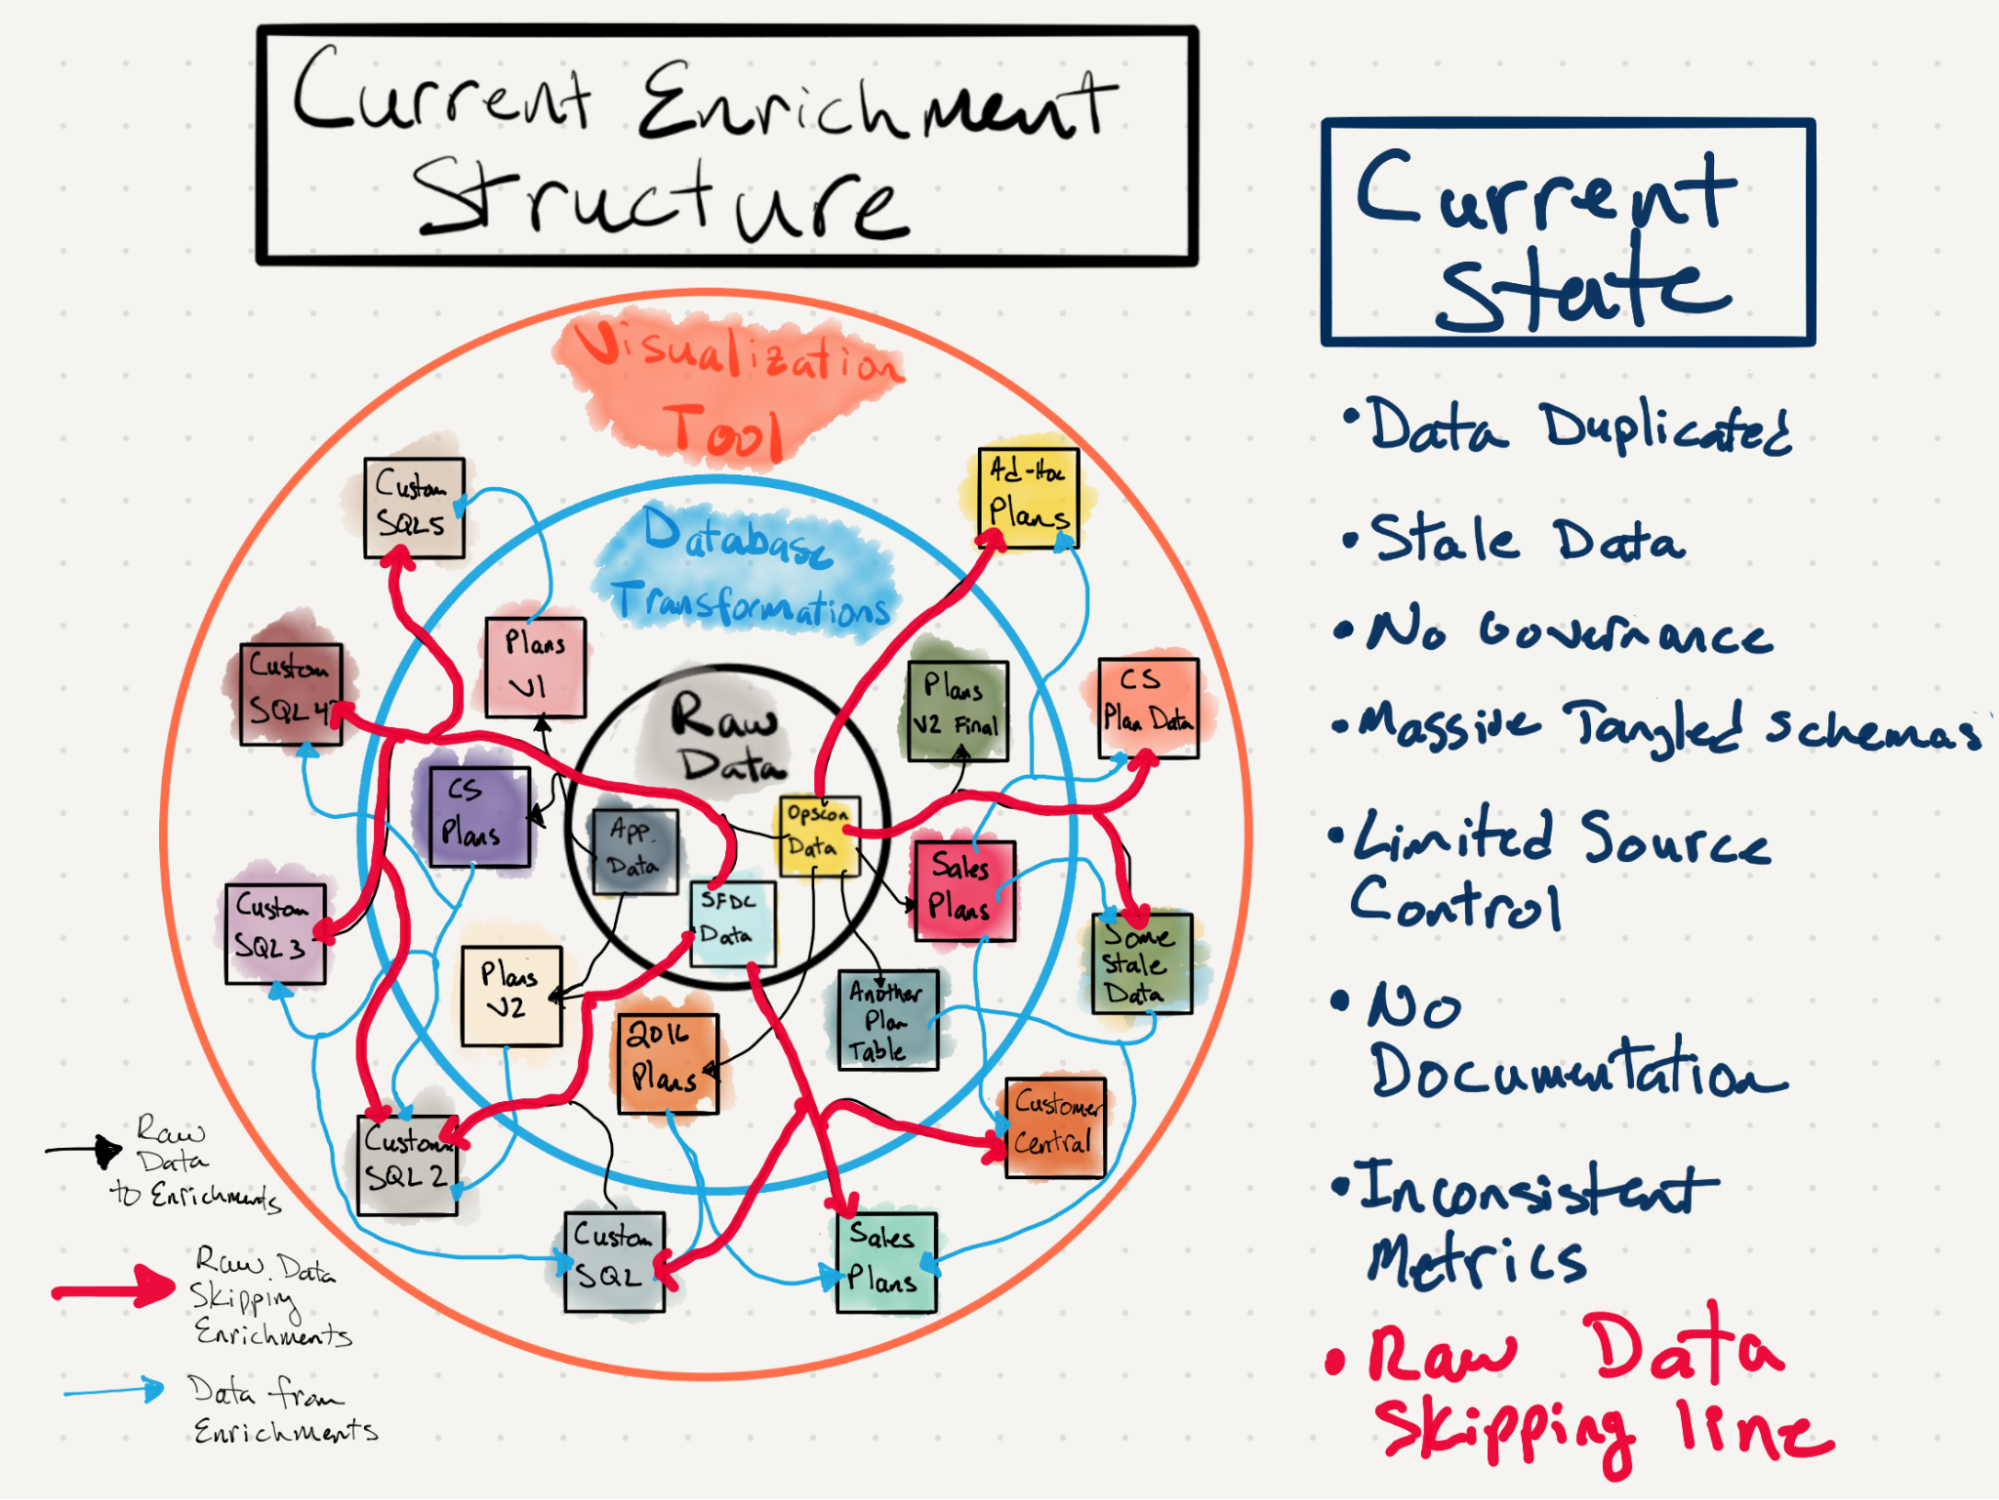 Current Enrichment
Structure
Current
State
Visualization
Tool
Database
Transformations
Raw
Data
Custom
SQL5
Ad-Hoc
Plans
Custom
SQL 4?
Plans
V1
Plans
V2 Final
CS
Plan Data
CS
Plans
App.
Data
Opscon
Data
Sales
Plans
SFDC
Data
Custom
SQL 3
Plans
V2
2016
Plans
Another
Plan
Table
Some
Stale
Data
Customer
Central
Custom
SQL 2
Custom
SQL
Sales
Plans
Raw
Data
to Enrichments
Raw Data
Skipping
Enrichments
Data from
Enrichments
• Data Duplicated
• Stale Data
• No Governance
• Massive Tangled Schemas
• Limited Source
Control
• No
Documentation
• Inconsistent
Metrics
• Raw Data
Skipping line